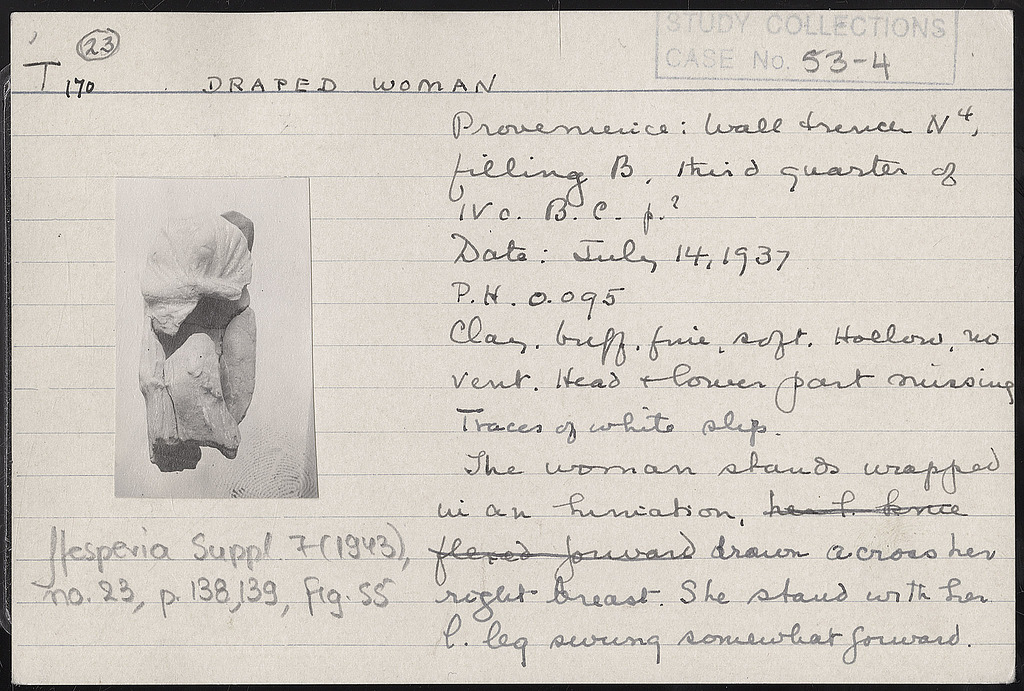 23
STUDY COLLECTIONS
CASE No. 53-4
T 170 DRAPED WOMAN
Provenience: Wall trench N4,
filling B, third quarter of
IV c. B.C. p.?
Date: July 14, 1937
P.H. 0.095
Clay, buff, fine, soft. Hollow, no
vent. Head + lower part missing
Traces of white slip.
The woman stands wrapped
in an himation, her l. knee
flexed forward drawn across her
right breast. She stand with her
l. leg swung somewhat forward.
Hesperia Suppl. 7 (1943),
no. 23, p. 138,139, fig. 55